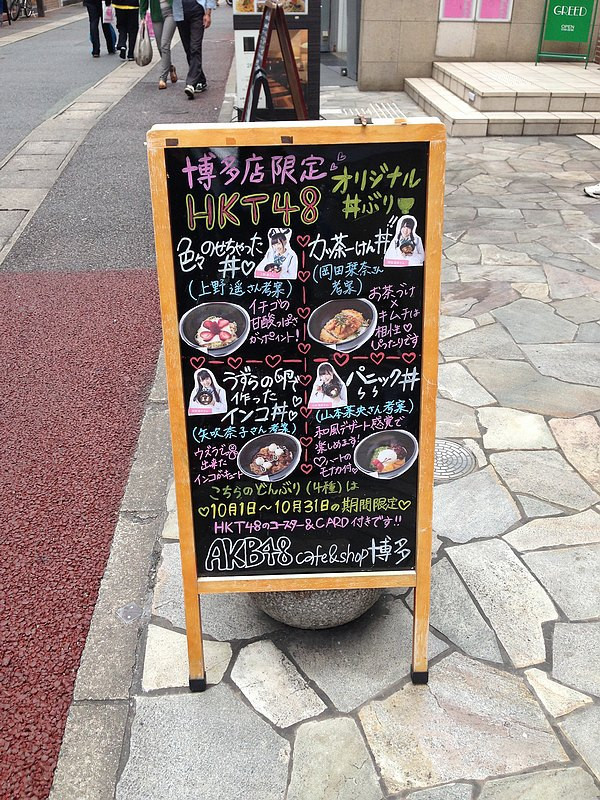 GREED
OPEN
博多店限定
HKT48
オリジナル
丼ぶり
色々のせちゃった
丼♡
(上野遥さん考案)
イチゴの
甘酸っぱさ
がポイント!
力茶ーけん丼
(岡田栞奈さん
考案)
お茶づけ
×
キムチは
相性♡
ぴったりです
うずらの卵で
作った
インコ丼♡
(矢吹奈子さん考案)
ウズラで
出来た
インコがキュート
パニック丼
(山本茉央さん考案)
和風デザート感覚で
楽しめます!
♡ハートの
モナカ付♡
こちらのどんぶり(4種)は
♡10月1日〜10月31日の期間限定♡
HKT48のコースター&CARD付きです!!
AKB48 cafe&shop 博多